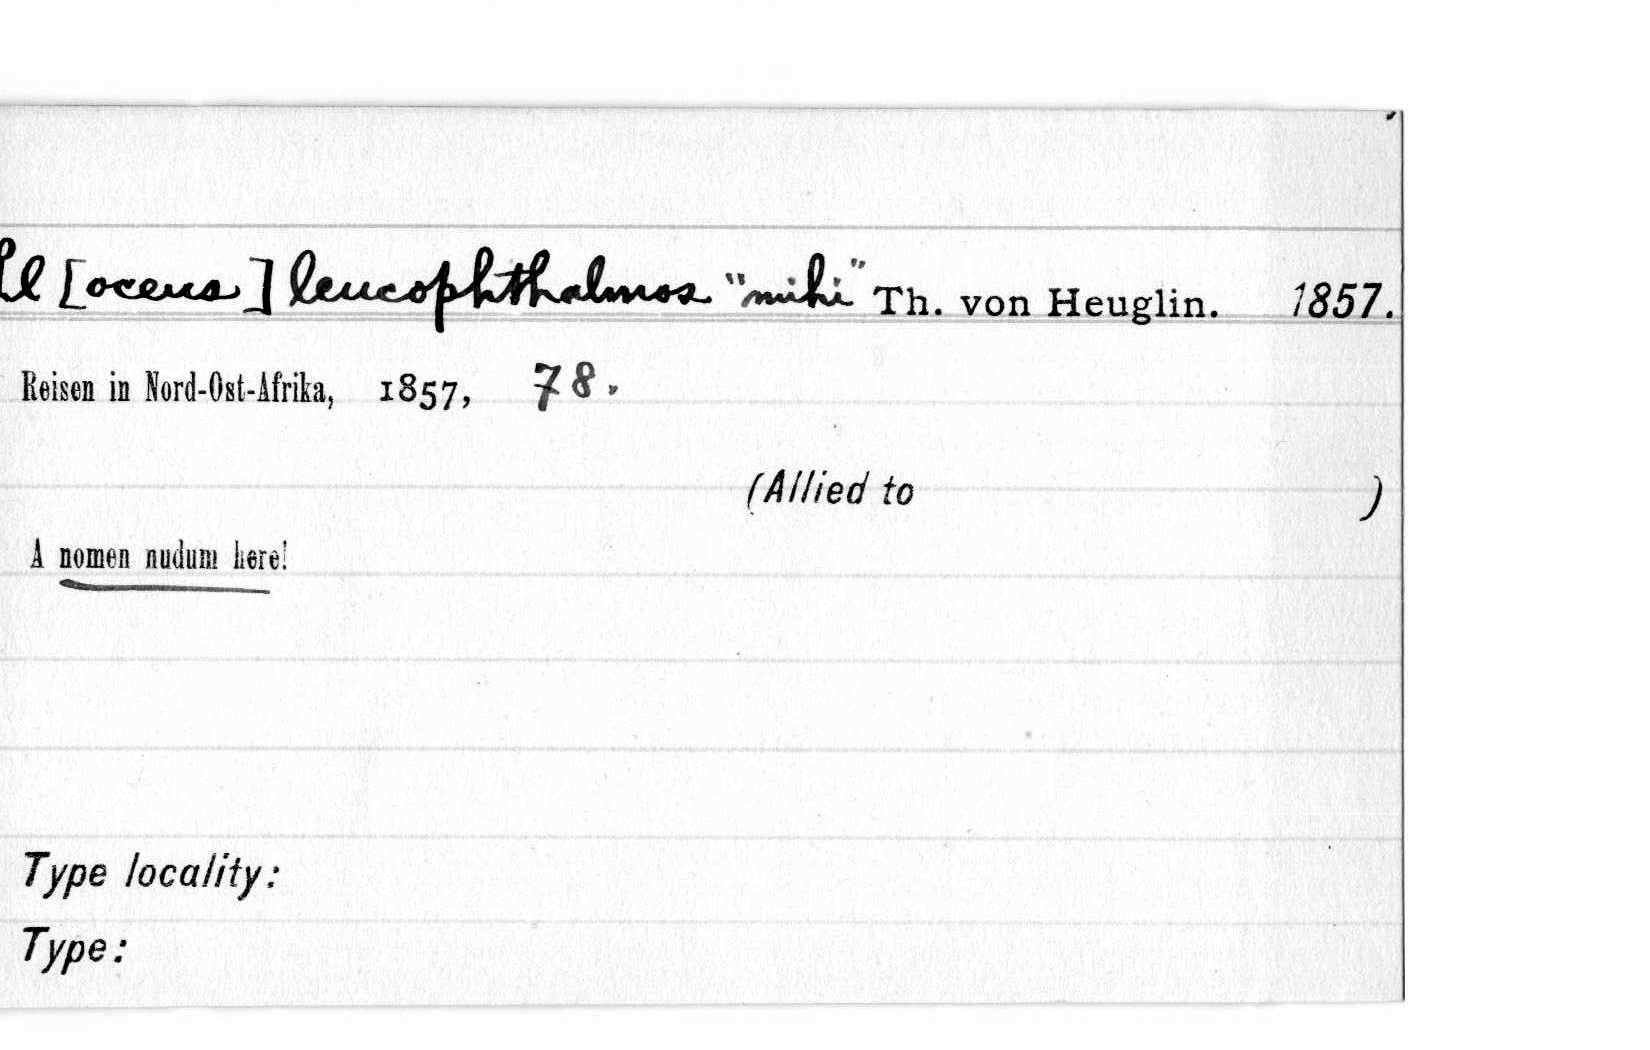 l [oceus] leucophthalmos "mihi" Th. von Heuglin. 1857.
Reisen in Nord-Ost-Afrika, 1857, 78.
(Allied to )
A nomen nudum here!
Type locality:
Type: